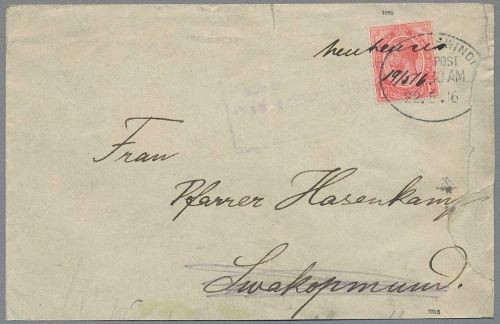 Neuheusis
19/5 16.
WINDH
POST
0 AM
22. 5. 16
Frau
Pfarrer Hasenkamp
Swakopmund.